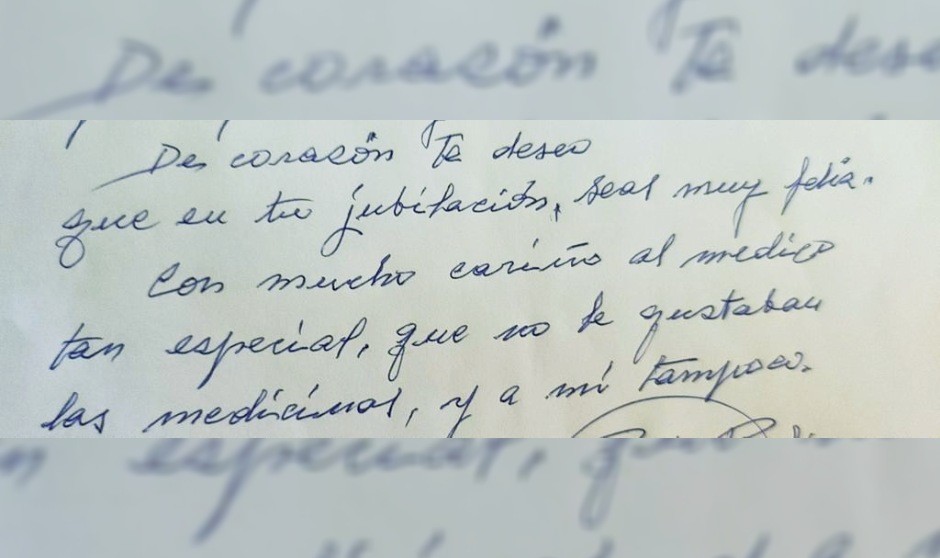 De corazón Te deseo
que en tu jubilación, seas muy feliz.
Con mucho cariño al medico
tan especial, que no le gustaban
las medicinas, y a mí tampoco.